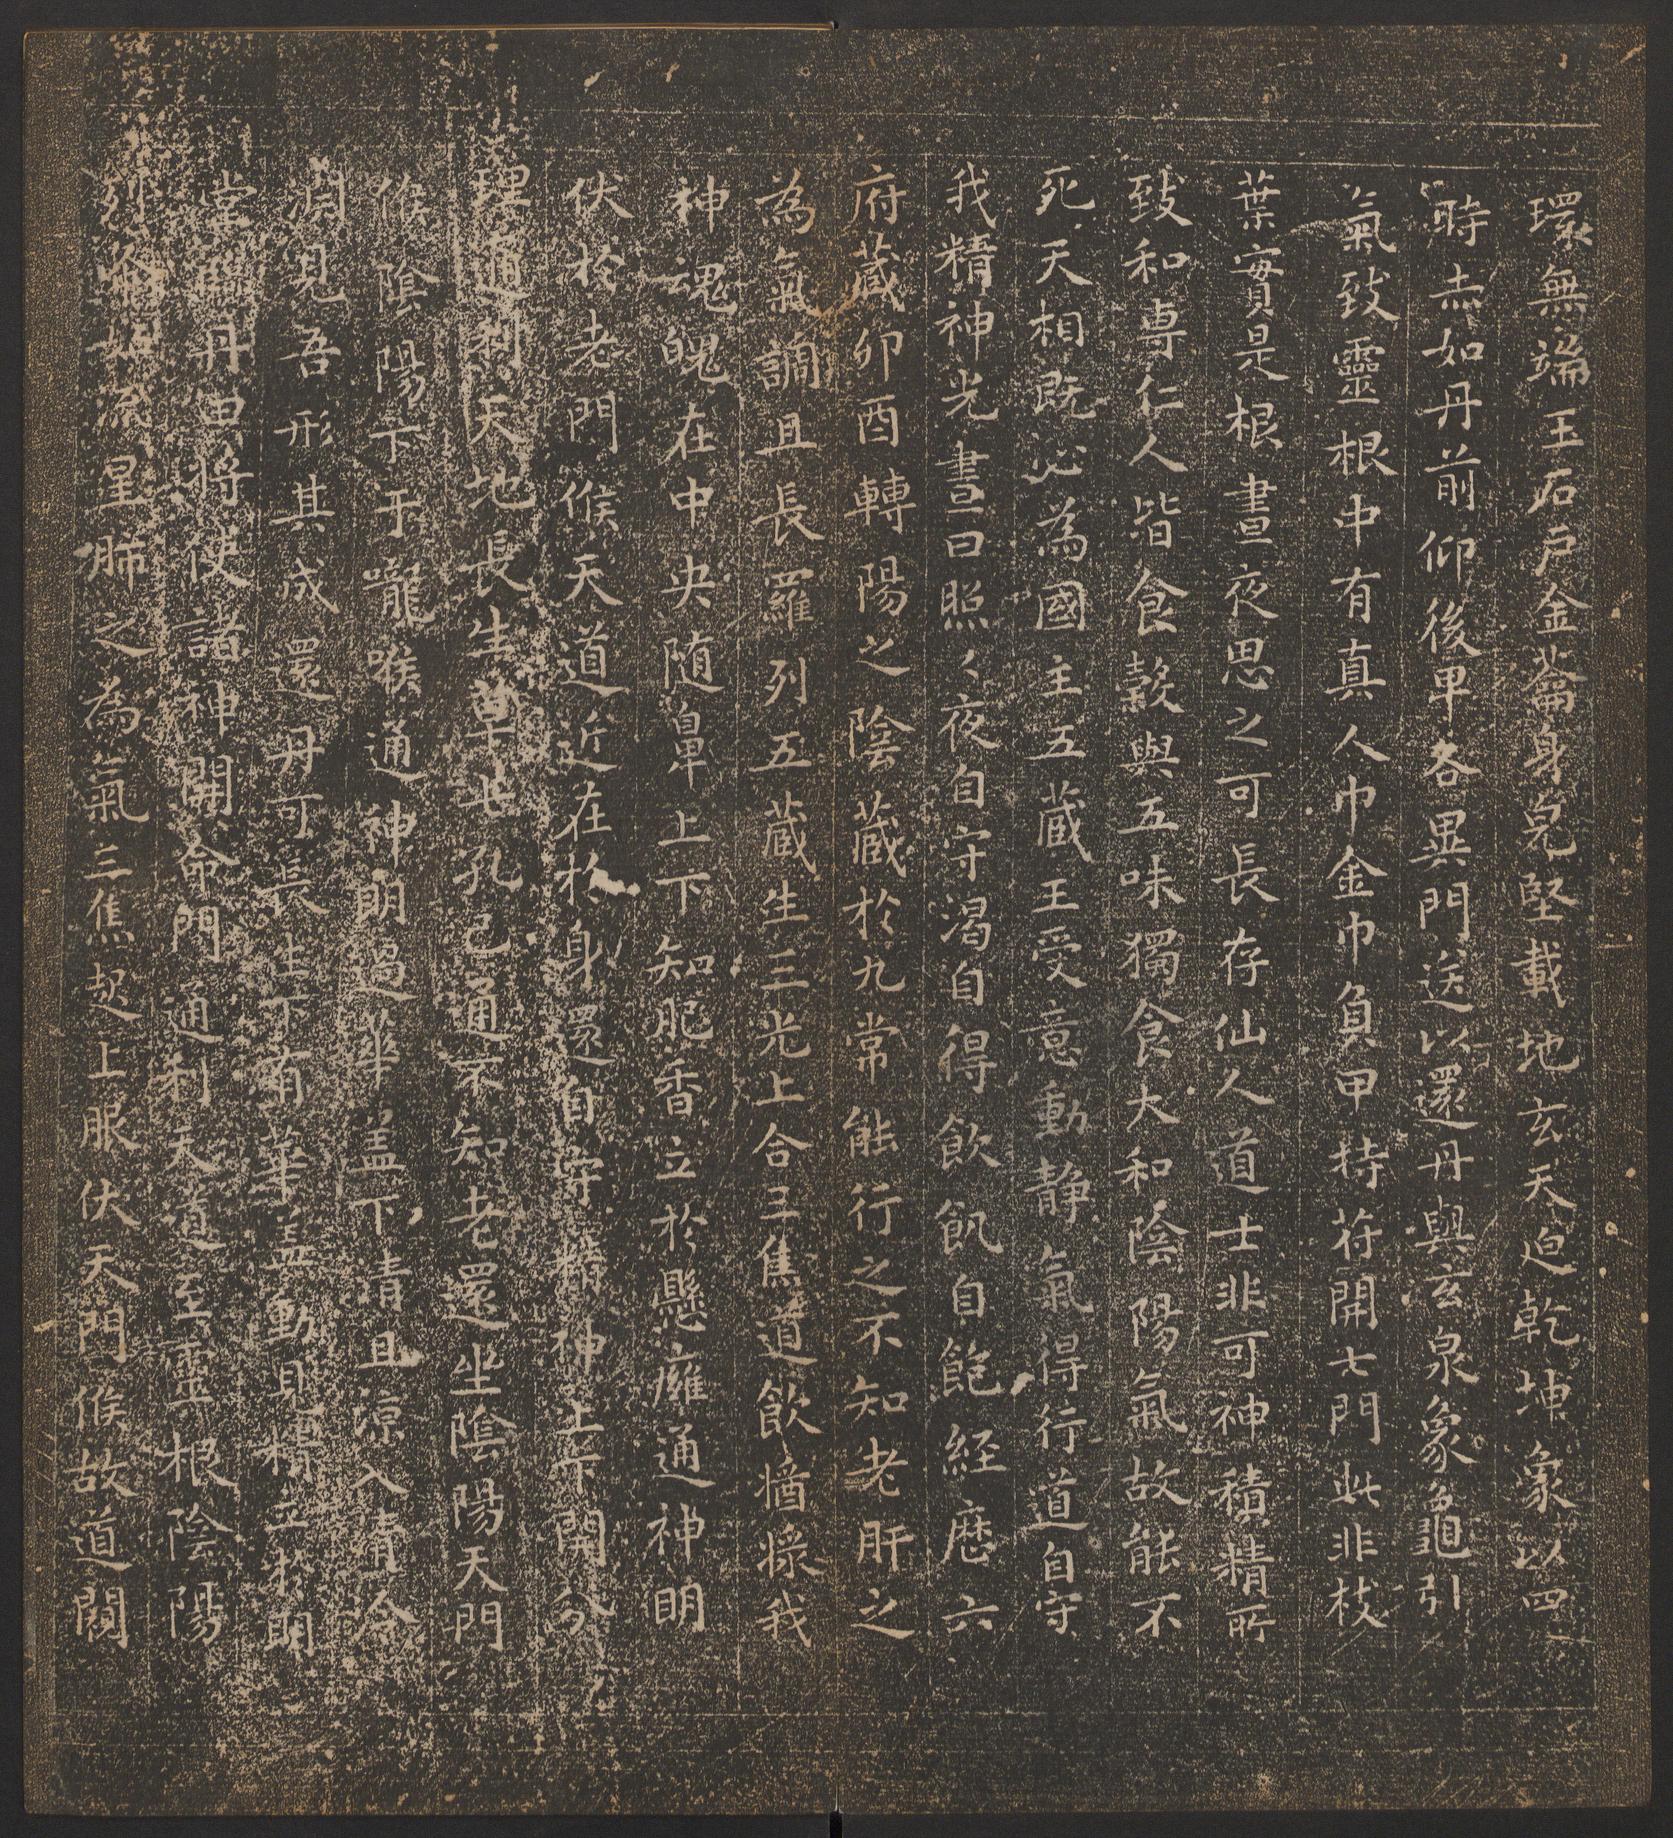 環無端玉石戶金籥身皃堅載地玄天迫乾坤象以四
時赤如丹前仰後卑各異門送以還丹與玄泉象龜引
氣致靈根中有真人巾金巾負甲持苻開七門此非枝
葉實是根晝夜思之可長存仙人道士非可神積精所
致和專仁人皆食穀與五味獨食大和陰陽氣故能不
死天相既必為國主五蔵王受意動靜氣得行道自守
我精神光晝日照〻夜自守渴自得飲飢自飽經歷六
府藏卯酉轉陽之陰藏於九常能行之不知老肝之
為氣調且長羅列五蔵生三光上合三焦道飲醬漿我
神魂魄在中央随鼻上下知肥香立於懸廱通神明
伏於老門候天道近在於身還自守精神上下開分
理通利天地長生草七孔已通不知老還坐陰陽天門
候陰陽下于嚨喉通神明過華盖下清且涼入清泠
淵見吾形其成還丹可長生下有華盖動見精立於明
堂臨丹田将使諸神開命門通利天道至靈根陰陽
列布如流星肺之為氣三焦起上服伏天門候故道闚